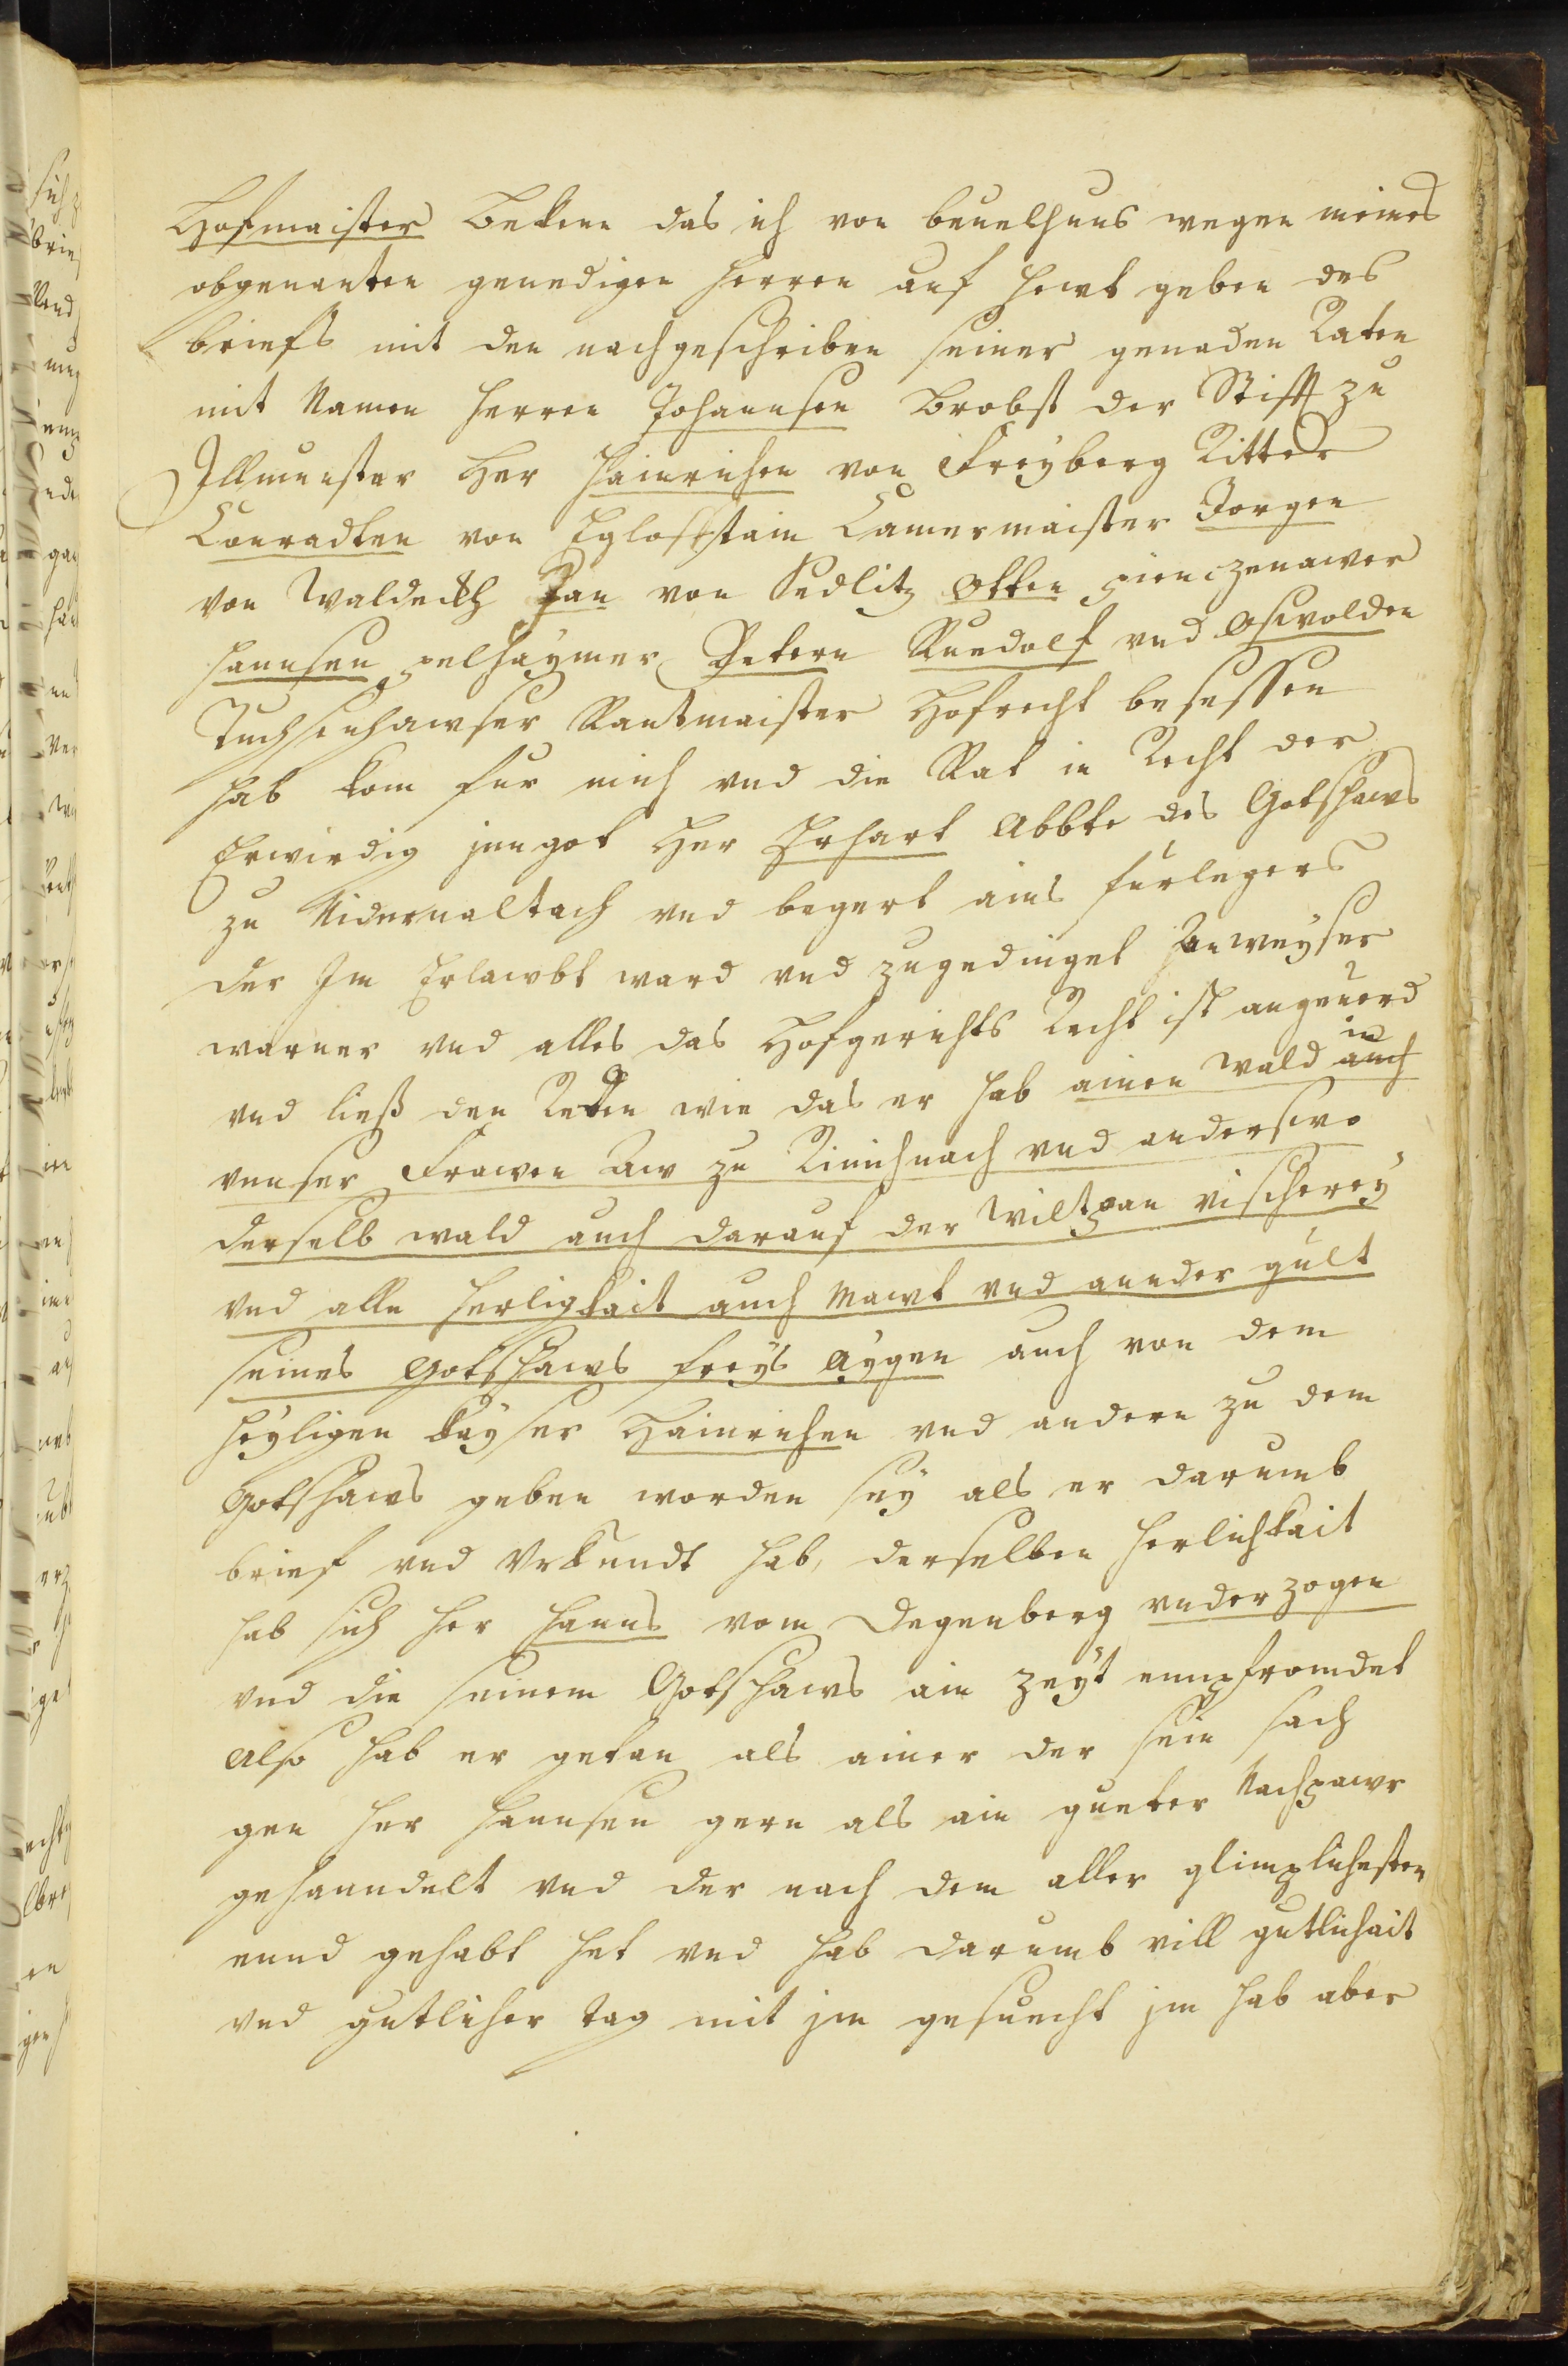 Hofmaister Bekenn das ich von beuelhnus wegen meines
obgenanten genedigen herren auf hewt geben des
briefs mit den nachgeschriben seiner genaden Räten
mit Namen herren Johannsen Brobst der Stifft zu
Illmunster Her Hainrichen von Freyberg Ritter
Conradten von Egloffstain Camermaister Jorgen
von Waldeckh Jan von Sedlitz Otten pienczenawer
Hannsen pelhaymer Petern Ruedolf vnd Oswolden
Tuchsenhawser Rantmaister Hofrecht besessen
hab kom fur mich vnd die Rät in Recht der
Erwirdig jn got Her Erhart Abbte des Gotshaws
zu Nidernaltach vnd begert ains furlegers
der Im Erlawbt ward vnd zugedinget Anweyser
warner vnd alles das Hofgerichts Recht ist angeuerd
in
vnd ließ den Reden wie das er hab ainen wald auch
vnnser Frawen Aw zu Rinichnach vnd anderswo
derselb wald auch darauf der Wiltpan vischerey
vnd alle herligkait auch Mawt vnd annder gült
seines Gotshaws freys Aygen auch von dem
heyligen kayser Hainrichen vnd andern zu dem
Gotshaws geben worden sey als er darumb
brief vnd Vrkundt hab, derselben herlichkait
hab sich her Hanns vom Degenberg vnderzogen
vnd die seinem Gotshaws ain zeyt emppfromdet
Also hab er getan als ainer der sein sach
gen her Hannsen gern als ain gueter Nachpawr
gehanndelt vnd der nach dem aller glimplichesten
ennd gehabt het vnd hab darumb vill gutlichait
vnd gutlicher tag mit jm gesuecht jm hab aber